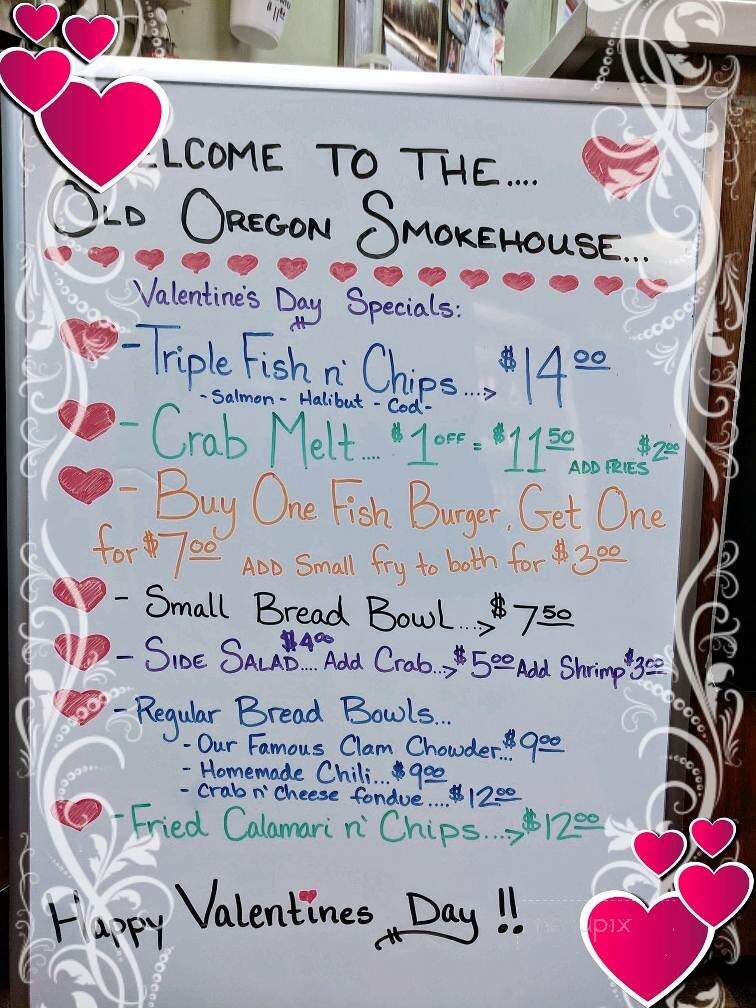 ELCOME TO THE....
OLD OREGON SMOKEHOUSE...
Valentine's Day Specials:
- Triple Fish n' Chips...> $14.00
- Salmon - Halibut - Cod -
- Crab Melt.... $1 OFF = $11.50 ADD FRIES $2.00
- Buy One Fish Burger, Get One
for $7.00 ADD Small fry to both for $3.00
- Small Bread Bowl...> $7.50
- SIDE SALAD.... $4.00 Add Crab..> $5.00 Add Shrimp $3.00
- Regular Bread Bowls...
- Our Famous Clam Chowder... $9.00
- Homemade Chili... $9.00
- Crab n' Cheese fondue.... $12.00
- Fried Calamari n' Chips...> $12.00
Happy Valentines Day !!